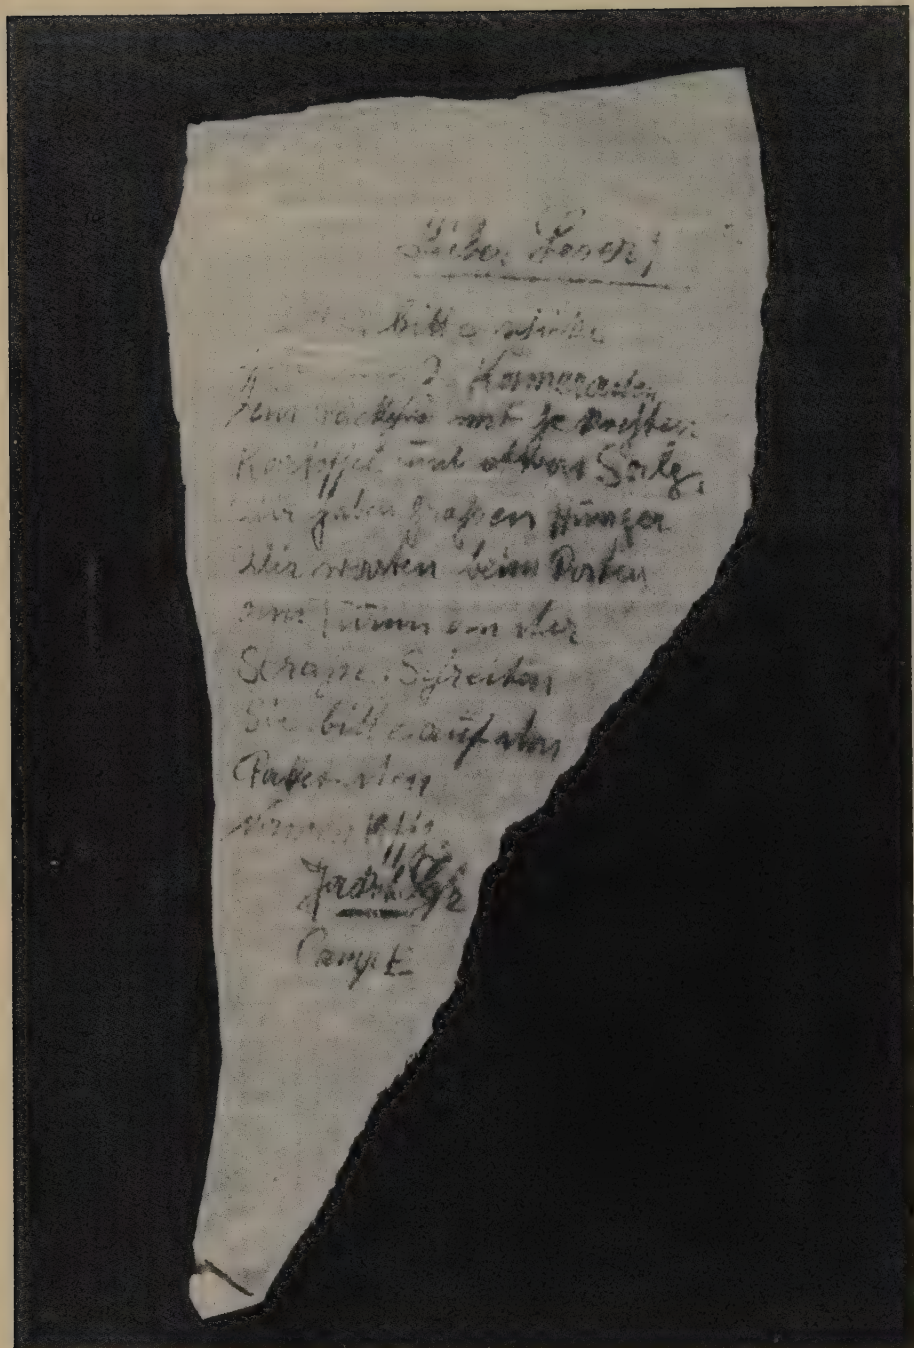 Lieber Leser!
bitte schicke
2 Kameraden
mit gekochten
Kartoffel und etwas Salz.
Wir haben großen Hunger
Wir warten beim Posten
am Turm an der
Straße. Schreiben
Sie bitte auf den
Paket den
Namen
Camp E